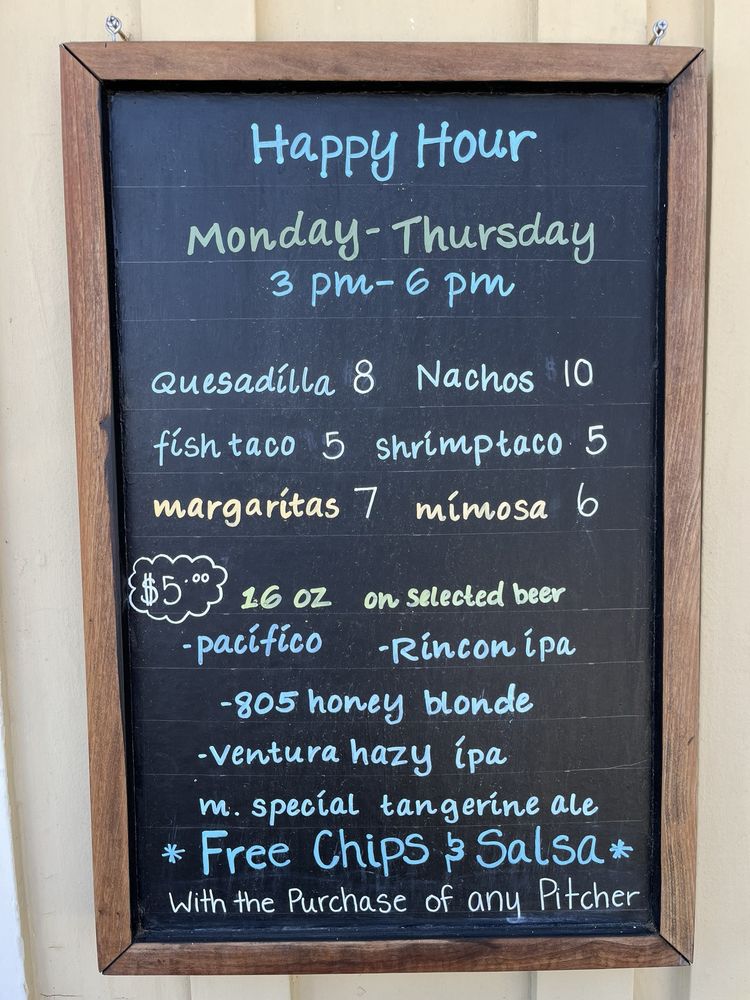 Happy Hour
Monday - Thursday
3 pm - 6 pm
Quesadilla 8 Nachos 10
fish taco 5 shrimp taco 5
margaritas 7 mimosa 6
$5.00 16 oz on selected beer
-pacifico -Rincon ipa
-805 honey blonde
-ventura hazy ipa
m. special tangerine ale
* Free Chips & Salsa *
With the Purchase of any Pitcher